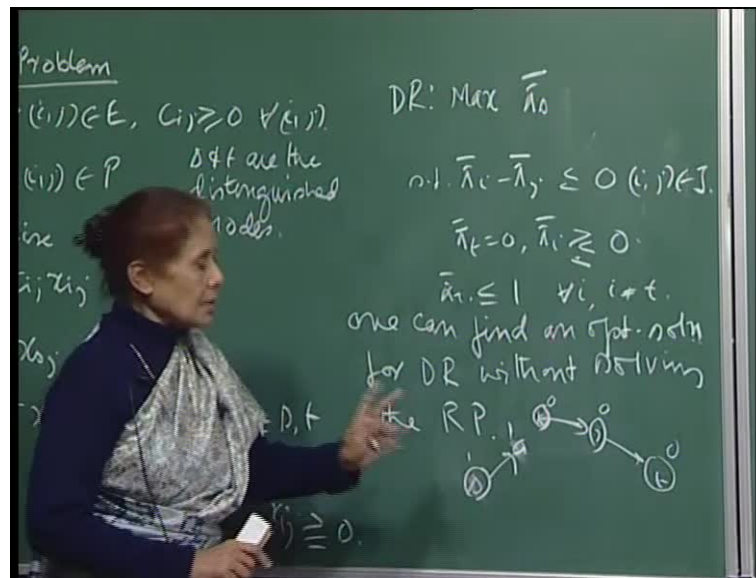 Problem
(i,j) ∈ E, Cij ≥ 0 ∀(i,j).
(i,j) ∈ P
s & t are the
distinguished
nodes.
xij
xsj
s, t
≥ 0.
DR: Max π̄s
s.t. π̄i - π̄j ≤ 0 (i,j) ∈ J.
π̄t = 0, π̄i ≷ 0.
≤ 1 ∀i, i ≠ t.
one can find an opt. soln
for DR without solving
the RP.
1 1 0 0 0
s j t